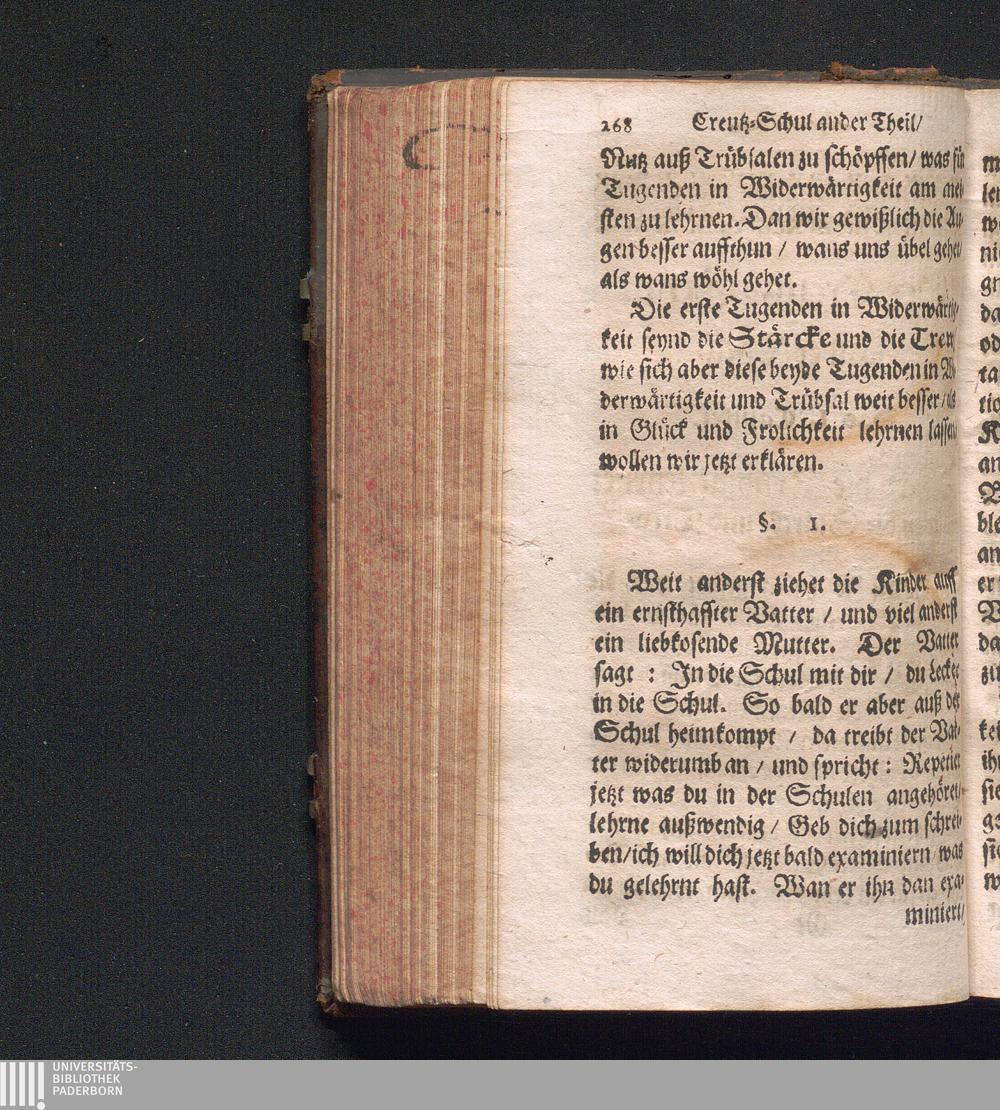 268 Creutz-Schul ander Theil/
Nutz auß Trübsalen zu schöpffen/ was für
Tugenden in Widerwärtigkeit am mei-
sten zu lehrnen. Dan wir gewißlich die Au-
gen besser auffthun / wans uns übel gehet/
als wans wöhl gehet.
Die erste Tugenden in Widerwärtig-
keit seynd die Stärcke und die Trew/
wie sich aber diese beyde Tugenden in Wi-
derwärtigkeit und Trübsal weit besser/ als
in Glück und Frolichkeit lehrnen lassen/
wollen wir jetzt erklären.
§. 1.
Weit anderst ziehet die Kinder auff
ein ernsthaffter Vatter / und viel anderst
ein liebkosende Mutter. Der Vatter
sagt : In die Schul mit dir / du Lecker
in die Schul. So bald er aber auß der
Schul heimkompt / da treibt der Vat-
ter widerumb an / und spricht : Repetier
jetzt was du in der Schulen angehöret/
lehrne außwendig / Geb dich zum schrei-
ben/ich will dich jetzt bald examiniern was
du gelehrnt hast. Wan er ihn dan exa-
miniert/
m
we
ni
gr
da
od
ta
tio
K
an
ble
an
er
da
zu
ke
ih
sie
ge
w
UNIVERSITÄTS-
BIBLIOTHEK
PADERBORN